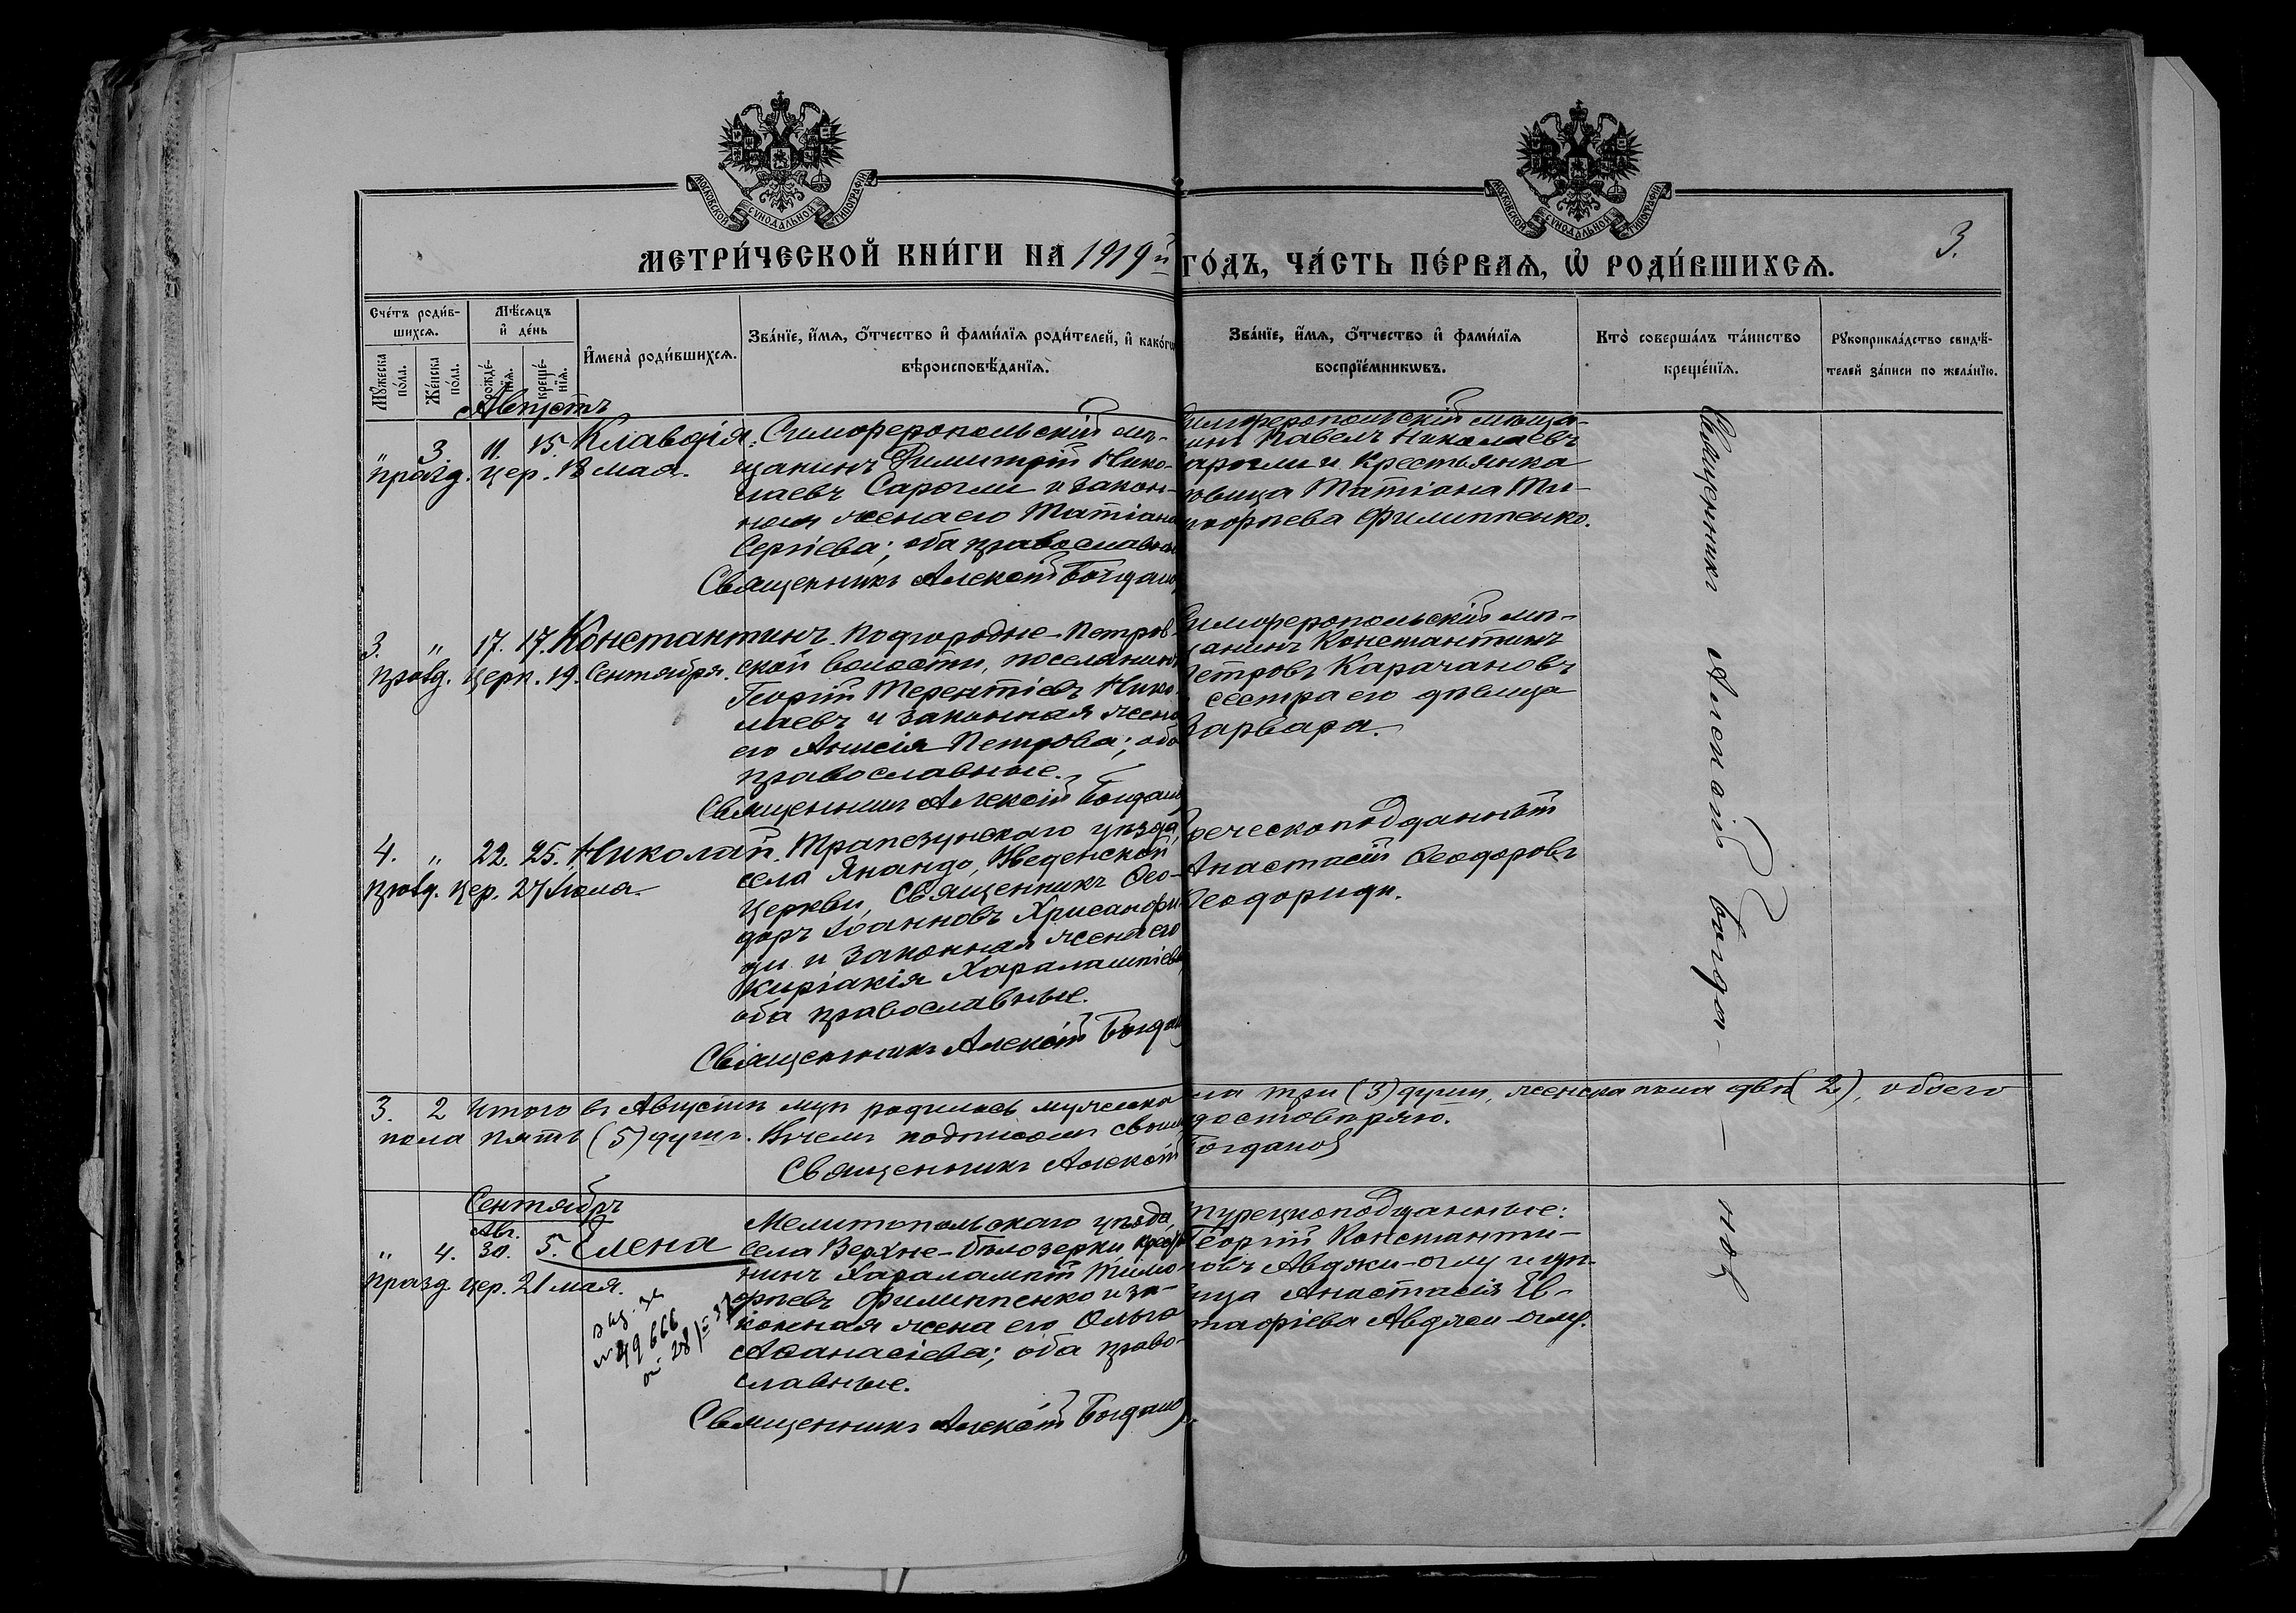 МОСКОВСКОЙ СУНОДАЛЬНОЙ ТИПОГРАФІИ
МОСКОВСКОЙ СУНОДАЛЬНОЙ ТИПОГРАФІИ
3.
МЕТРИ́ЧЕСКОЙ КНИ́ГИ НА 1919й ГО́ДЪ, ЧА́СТЬ ПЕ́РВАѦ, Ѡ҆ РОДИ́ВШИХСѦ.
Сче́тъ роди́в-
шихсѧ.
Мꙋ́жеска по́ла.
Же́нска по́ла.
Мѣ́сѧцъ
и҆ де́нь
рожде́-
нїѧ.
креще́-
нїѧ.
И҆мена̀ роди́вшихсѧ.
Зва́нїе, и҆́мѧ, ѻ҆́тчество и҆ фами́лїѧ роди́телей, и҆ како́гѡ
вѣроисповѣ́данїѧ.
Зва́нїе, и҆́мѧ, ѻ҆́тчество и҆ фами́лїѧ
воспрїе́мникѡвъ.
Кто̀ соверша́лъ та́инство
креще́нїѧ.
Рꙋкоприкла́дство свидѣ́-
телей за́писи по жела́нїю.
Августъ
" 3 11. 15. Клавдія.
празд. цер. 18 мая.
Симферопольскій мѣ-
щанинъ Димитрій Нико-
лаевъ Сарогли и закон-
ная жена его Татіана
Сергіева; оба православные
Священникъ Алексій Богданов
Симферопольскій мѣща-
нинъ Павелъ Николаевъ
Сарогли и крестьянка
дѣвица Татіана Ти-
моѳеева Филиппенко.
3. " 17. 17. Константинъ.
празд. церк. 19. Сентября.
Подгородне-Петров-
ской волости, поселянинъ
Георгій Терентіевъ Нико-
лаевъ и законная жена
его Анисія Петрова; оба
православные.
Священникъ Алексій Богданов
Симферопольскій мѣ-
щанинъ Константинъ
Петровъ Карачановъ
сестра его дѣвица
Варвара.
4. " 22. 25. Николай.
празд. цер. 27 Іюля.
Трапезунскаго уѣзда,
села Янандо, Введенской
церкви, Священникъ Ѳео-
доръ Іоанновъ Хрисанфи-
ди и законная жена его
Киріакія Харалампіева
оба православные.
Священникъ Алексій Богданов
Греческоподданный
Анастасій Ѳеодоровъ
Ѳеодориди.
Священникъ Алексій Богда-новъ
3. 2 Итого въ Августѣ м-цѣ родилось мужеска пола три (3) души, женска пола двѣ (2), обоего
пола пять (5) душъ. Въ чемъ подписомъ своимъ удостовѣряю.
Священникъ Алексій Богданов
Сентябрь
Авг.
" 4. 30. 5. Елена
празд. цер. 21 мая.
№ 49666
Мелитопольскаго уѣзда,
села Верхне-Бѣлозерки крестья-
нинъ Харалампій Тимо-
ѳеевъ Филиппенко и за-
конная жена его Ольга
Аѳанасіева; оба право-
славные.
Священникъ Алексій Богданов
Турецкоподданные:
Георгій Константи-
новъ Авджи-оглу и дѣ-
вица Анастасія Ев-
стафіева Авджи-оглу.